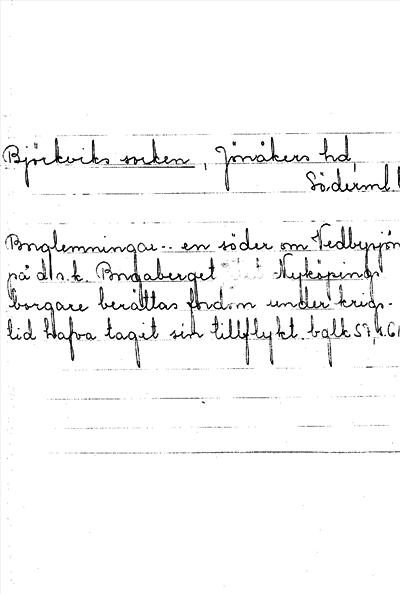 Björkviks socken, Jönåkers hd,
Söderml
Borglemningar .. en söder om Vedbysjön
på d. s. k. Borgaberget Nyköpings
borgare berättas fordom under krigs-
tid hafva tagit sin tillflykt.